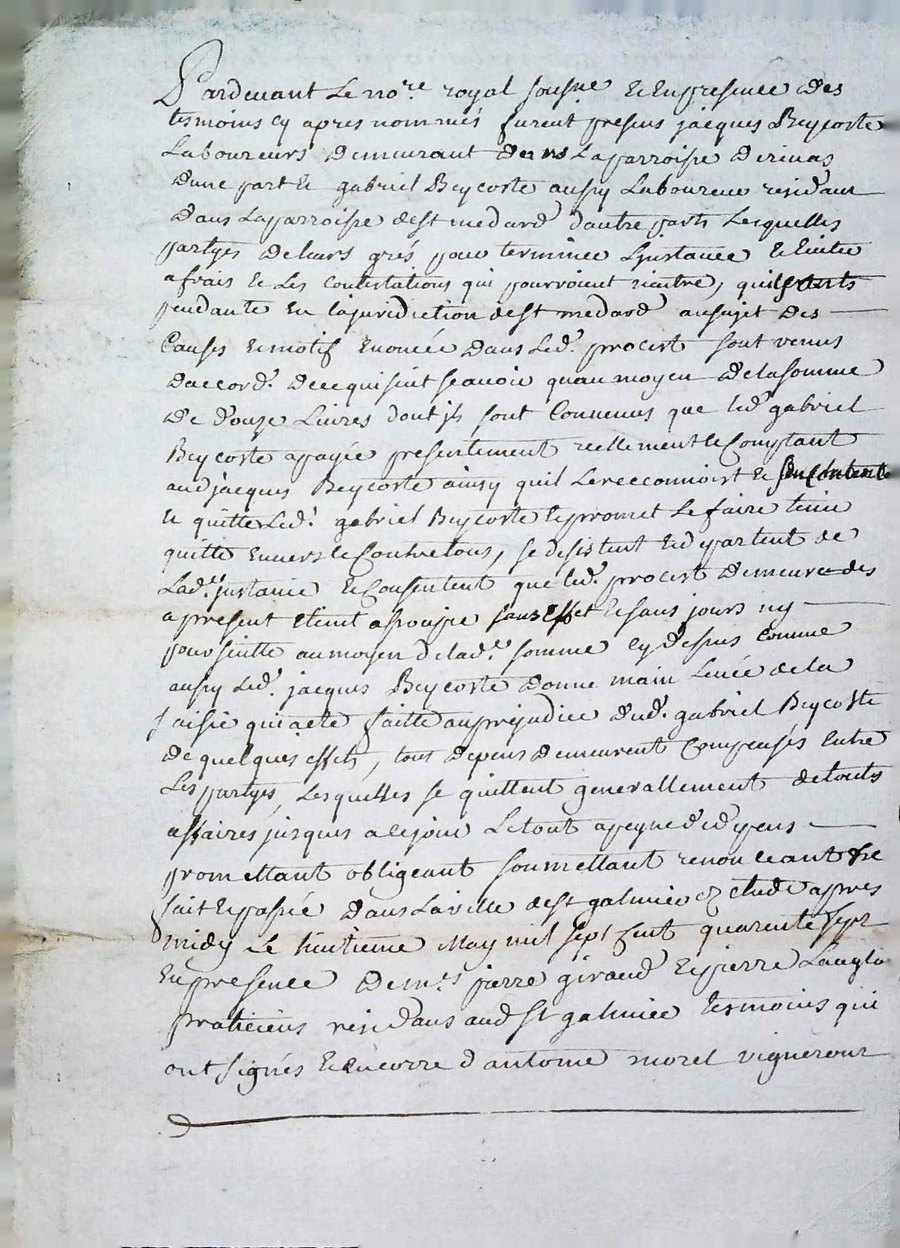 Pardevant Le no.re royal sousne Et En presence des
tesmoins cy apres nommés furent presens jacques Beycoste
Laboureurs demeurant dans La parroisse de rivas
dune part Et gabriel Beycoste aussy Laboureur residant
dans La parroisse de st medard dautre parts Lesquelles
partyes de leurs grés pour terminer Linstance Et Eviter
a frais Et Les Contestations qui pourroient naitre, quils
pendante En la juridiction de st medard au sujet des
Causes Et motif Enoncée dans Led. procest sont venus
daccord. de ce qui suit scavoir quau moyen de la somme
de douze Livres dont ils sont Convenus que led. gabriel
Beycoste a payée presentement reellement Et Comptant
aud jacques Beycoste ainsy quil Le reconnoist Et sen Contente
Et quitte Led. gabriel Beycoste Et promet Le faire tenir
quitte Envers Et Contre tous, se desistent Et departent de
Lad.e instance Et Consentent que led. procest demeure des
a present Eteint assoupie sans Effet Et sans jours ny
poursuitte au moyen de lad.e somme cy dessus Comme
aussy Led. jacques Beycoste donne main Levée de la
saisie qui a ete faitte au prejudice dud. gabriel Beycoste
de quelques effets, tous depens demeurent Compensés Entre
Les partyes, Lesquelles se quittent generallement de touts
affaires jusques a ce jour Le tout a peyne de depens
promettant obligeant soumettant renonceant &c
fait Et passée dans La ville de st galmier & Etude appres
midy Le huitieme May mil sept Cent quarente sept
En presence de m.s pierre giraud Et pierre Langlo
praticiens residans aud st galmier tesmoins qui
ont signés Et Encorre dantoine morel vigneron